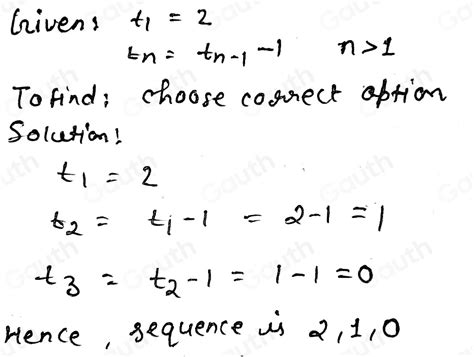 Given: t₁ = 2
tn = tn-1 -1 n>1
To find: choose correct option
Solution:
t₁ = 2
t₂ = t₁ - 1 = 2-1 = 1
t₃ = t₂ - 1 = 1 - 1 = 0
Hence, sequence is 2, 1, 0